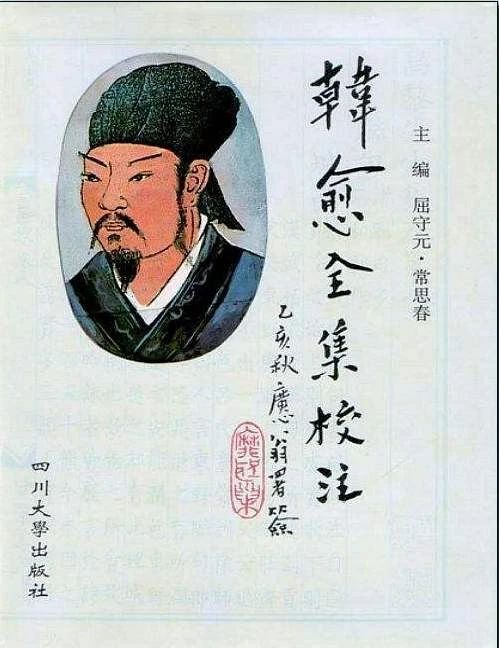 主编 屈守元·常思春
韓愈全集校注
乙亥秋廣翁署簽
四川大學出版社